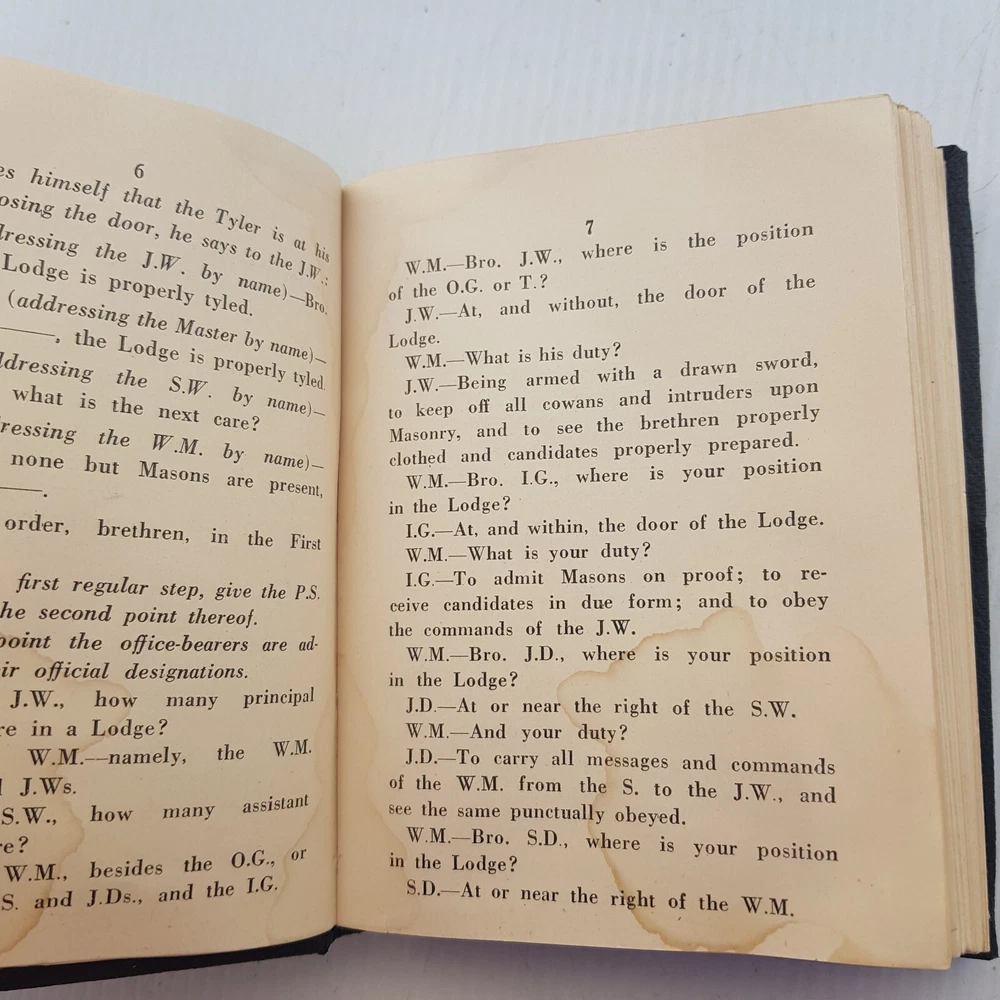 6
es himself that the Tyler is at his
osing the door, he says to the J.W.:
dressing the J.W. by name)—Bro.
Lodge is properly tyled.
(addressing the Master by name)—
——, the Lodge is properly tyled.
ddressing the S.W. by name)—
what is the next care?
ressing the W.M. by name)—
none but Masons are present,
——.
order, brethren, in the First
first regular step, give the P.S.
he second point thereof.
point the office-bearers are ad-
eir official designations.
J.W., how many principal
re in a Lodge?
W.M.—namely, the W.M.
J.Ws.
S.W., how many assistant
re?
W.M., besides the O.G., or
S. and J.Ds., and the I.G.
7
W.M.—Bro. J.W., where is the position
of the O.G. or T.?
J.W.—At, and without, the door of the
Lodge.
W.M.—What is his duty?
J.W.—Being armed with a drawn sword,
to keep off all cowans and intruders upon
Masonry, and to see the brethren properly
clothed and candidates properly prepared.
W.M.—Bro. I.G., where is your position
in the Lodge?
I.G.—At, and within, the door of the Lodge.
W.M.—What is your duty?
I.G.—To admit Masons on proof; to re-
ceive candidates in due form; and to obey
the commands of the J.W.
W.M.—Bro. J.D., where is your position
in the Lodge?
J.D.—At or near the right of the S.W.
W.M.—And your duty?
J.D.—To carry all messages and commands
of the W.M. from the S. to the J.W., and
see the same punctually obeyed.
W.M.—Bro. S.D., where is your position
in the Lodge?
S.D.—At or near the right of the W.M.